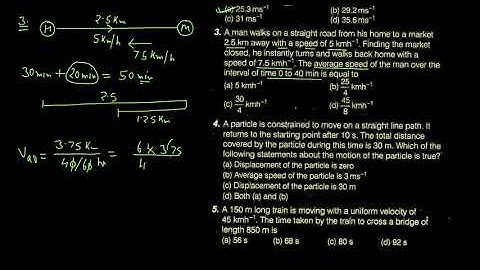 3.
2.5 Km
H
M
5 Km/h
7.5 Km/h
30 min + 20 min = 50 min
2.5
1.25 Km
Vav = 3.75 Km / 40/60 hr = 6 x 3.75 / 4
(a) 25.3 ms⁻¹ (b) 29.2 ms⁻¹
(c) 31 ms⁻¹ (d) 35.6 ms⁻¹
3. A man walks on a straight road from his home to a market
2.5 km away with a speed of 5 kmh⁻¹. Finding the market
closed, he instantly turns and walks back home with a
speed of 7.5 kmh⁻¹. The average speed of the man over the
interval of time 0 to 40 min is equal to
(a) 5 kmh⁻¹ (b) 25/4 kmh⁻¹
(c) 30/4 kmh⁻¹ (d) 45/8 kmh⁻¹
4. A particle is constrained to move on a straight line path. It
returns to the starting point after 10 s. The total distance
covered by the particle during this time is 30 m. Which of the
following statements about the motion of the particle is true?
(a) Displacement of the particle is zero
(b) Average speed of the particle is 3 ms⁻¹
(c) Displacement of the particle is 30 m
(d) Both (a) and (b)
5. A 150 m long train is moving with a uniform velocity of
45 kmh⁻¹. The time taken by the train to cross a bridge of
length 850 m is
(a) 56 s (b) 68 s (c) 80 s (d) 92 s